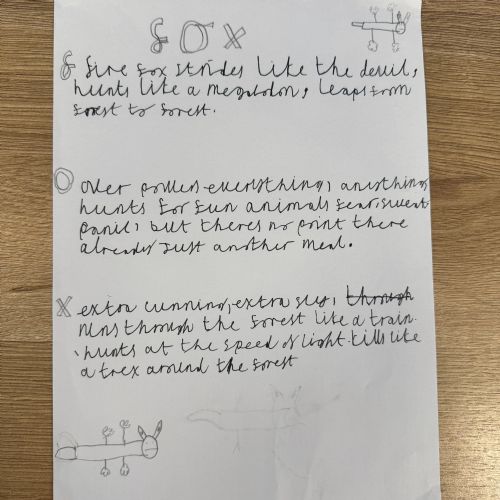 fox
f fire fox strides like the devil,
hunts like a megalodon, leaps from
forest to forest.
O over powers everything, anything
hunts for fun animals fear, sweat
panic, but theres no point there
already just another meal.
X extra cunning, extra sly, through
runs through the forest like a train.
hunts at the speed of light. kills like
a trex around the forest